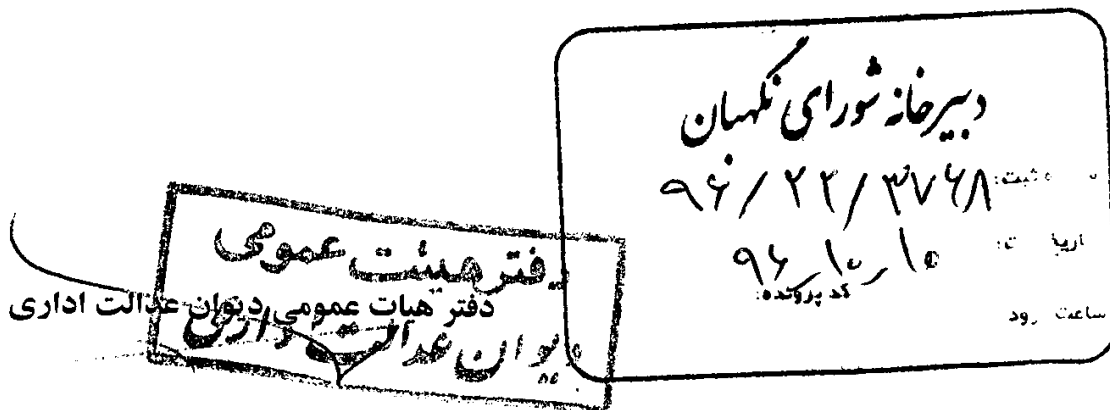 دبیرخانه شورای نگهبان
ثبت: ۹۶/۲۲/۳۷۶۸
۹۶/۱۰/۱۰
کد پرونده:
ساعت
دفتر هیئت عمومی
دیوان عدالت اداری
دفتر هیات عمومی دیوان عدالت اداری